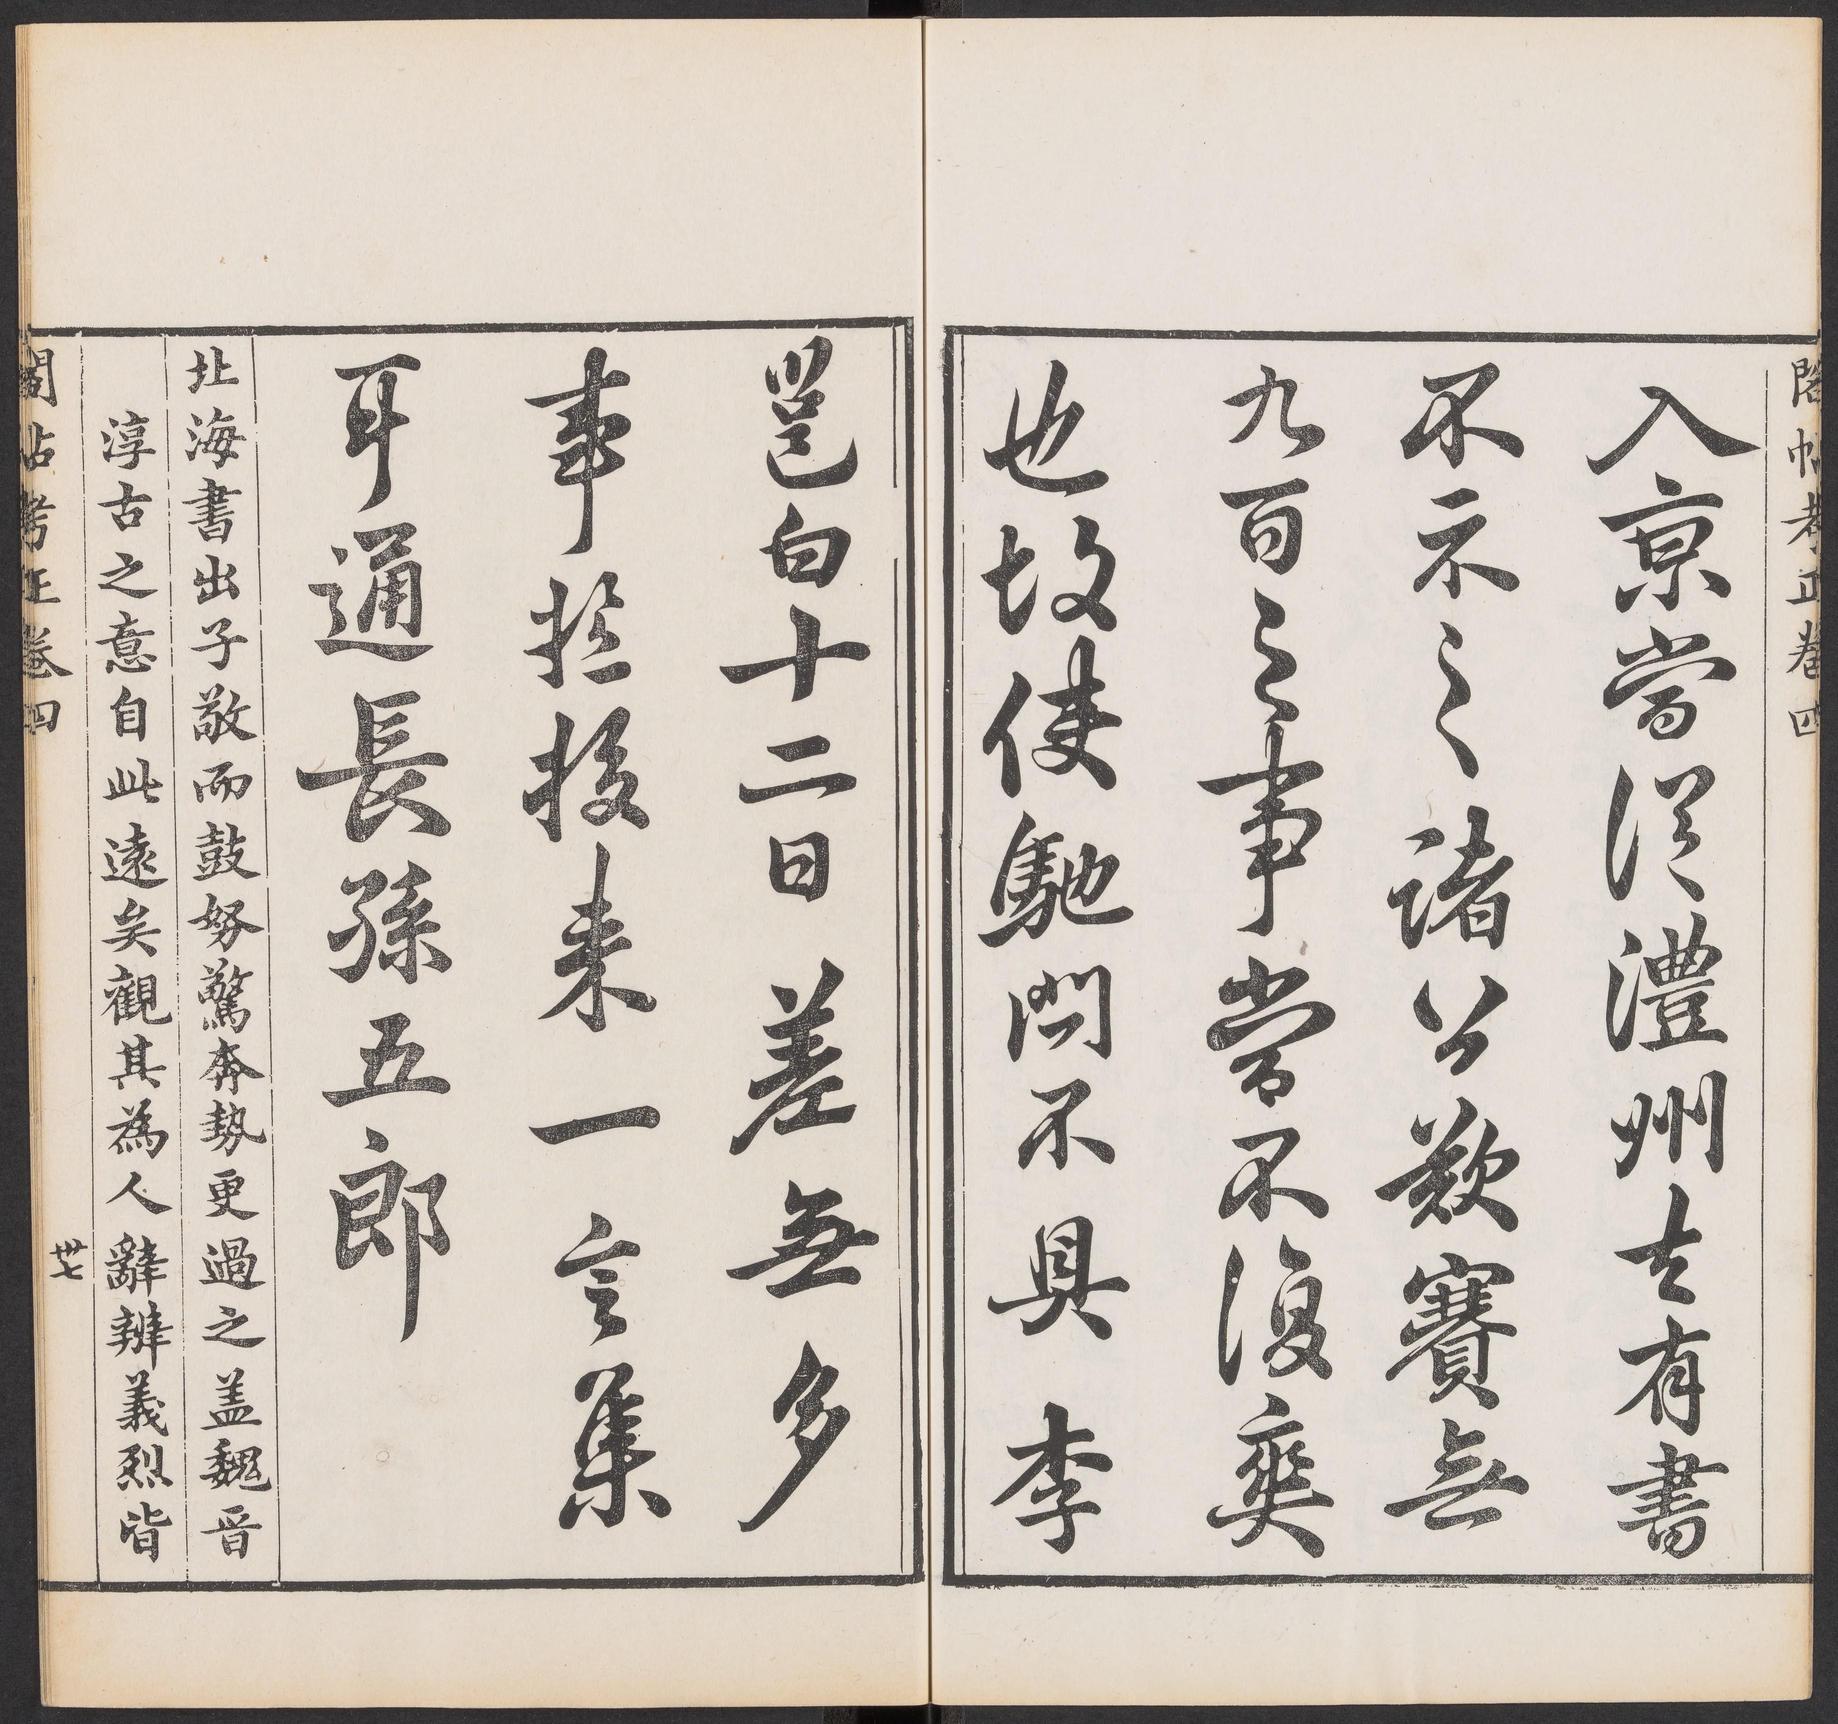 閣帖考正卷四
入京嘗從澧州去有書
不示之諸公歎賽無
九百之事嘗不復奕
也故使馳問不具 李
邕白十二日差無多
事於投來一言集
耳通長孫五郎
北海書出子敬而鼓努驚奔勢更過之盖魏晉
淳古之意自此遠矣觀其為人辭辨義烈皆
閣帖考正卷四
卅七